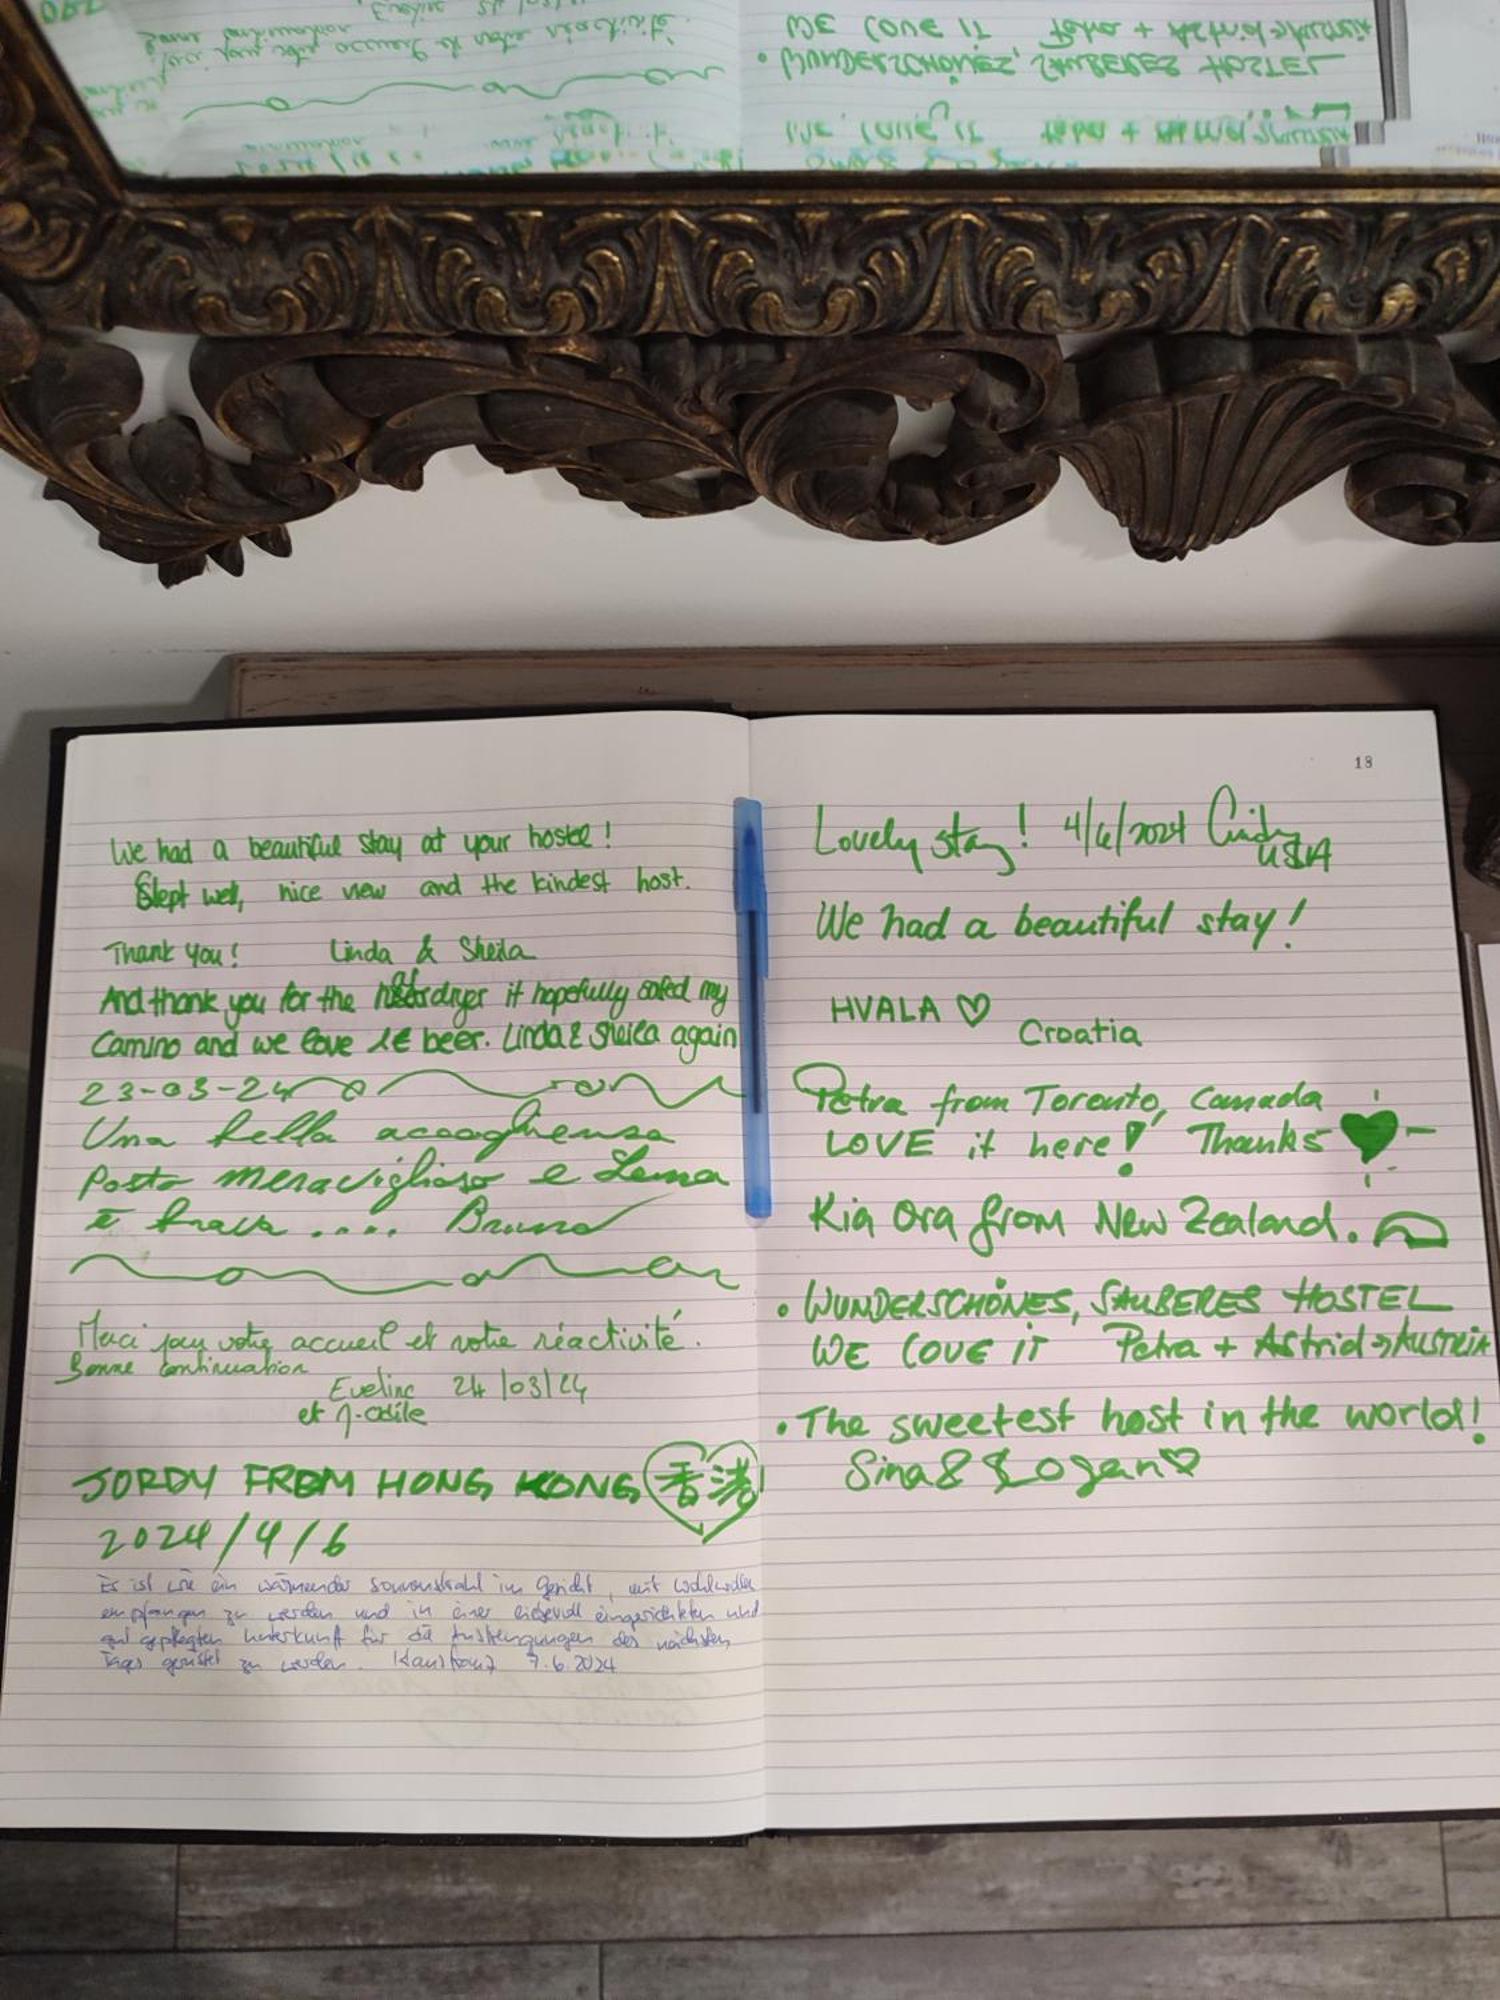 We had a beautiful stay at your hostel!
Slept well, nice view and the kindest host.
Thank you! Linda & Sheila
And thank you for the dryer it hopefully safed my
Camino and we love 1€ beer. Linda & Sheila again
23-03-24
Una bella accoaghensa
Posto meraviglioso e
è brava .... Bruno
Merci pour votre accueil et votre réactivité.
Bonne continuation
Eveline 24/03/24
et M-Odile
JORDY FROM HONG KONG 香港
2024/4/6
Es ist wie ein wärmender Sonnenstrahl im Gesicht, mit Wohlwollen
empfangen zu werden und in einer liebevoll eingerichteten und
gut gepflegten Unterkunft für die Anstrengungen des nächsten
Tages gerüstet zu werden. 7.6.2024
18
Lovely stay! 4/6/2024 Cindy
USA
We had a beautiful stay!
HVALA ♡
Croatia
Petra from Toronto, Canada
LOVE it here! Thanks
Kia Ora from New Zealand.
• WUNDERSCHÖNES, SAUBERES HOSTEL
WE LOVE IT Petra + Astrid → AUSTRIA
• The sweetest host in the world!
Sina & Logan ♡